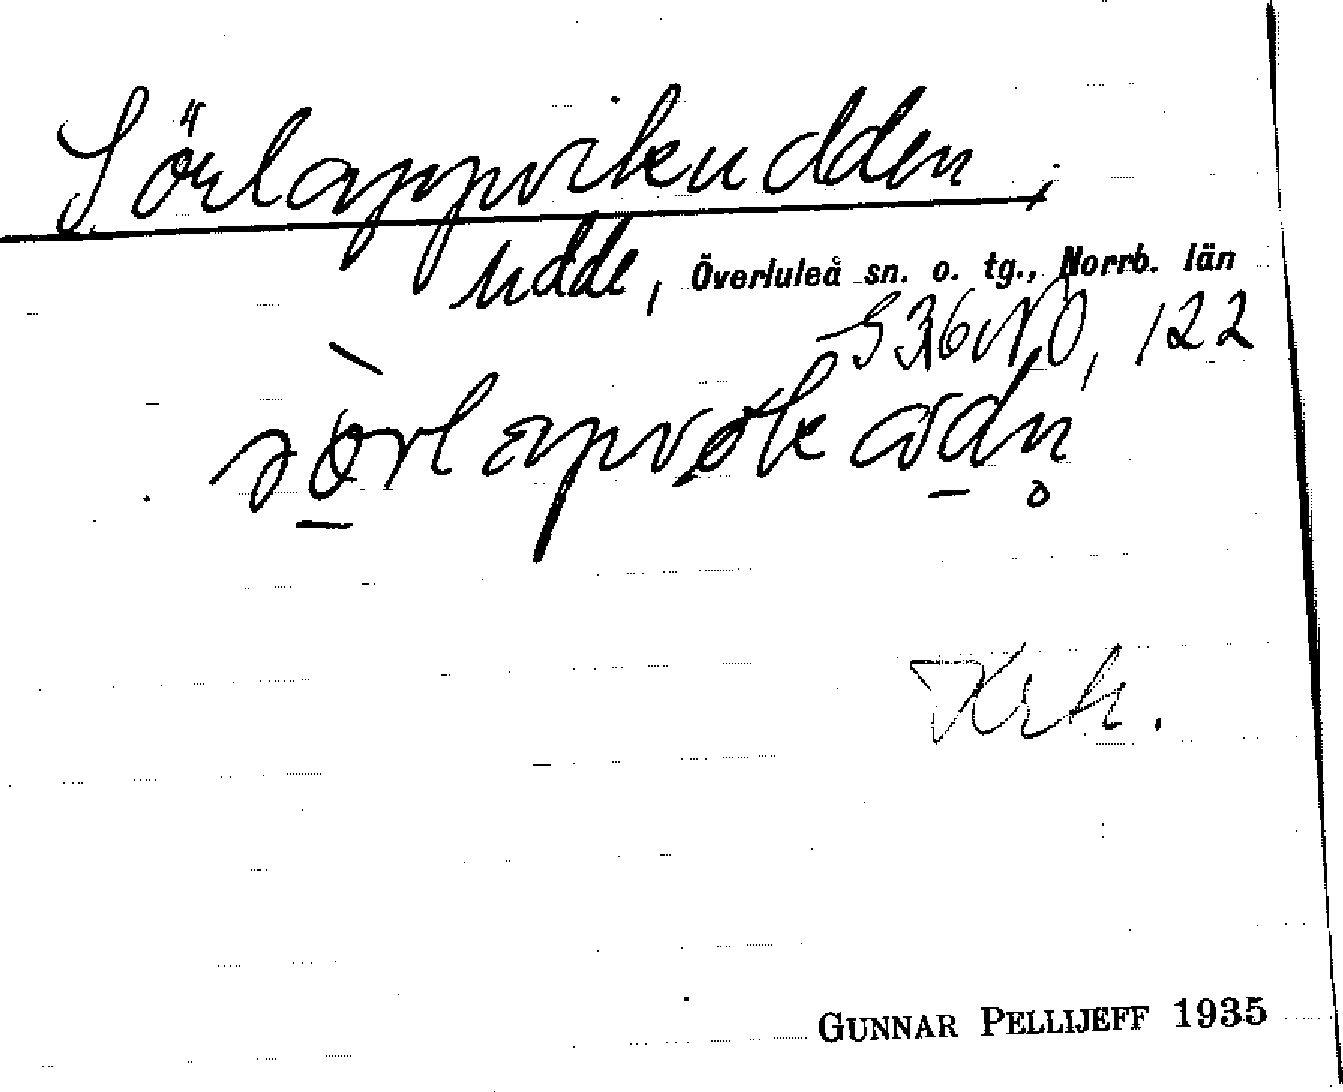 Sörlappvikudden,
udde, Överluleå sn. o. tg., Norrb. län
S 36 NO, 122
Krh.
GUNNAR PELLIJEFF 1935